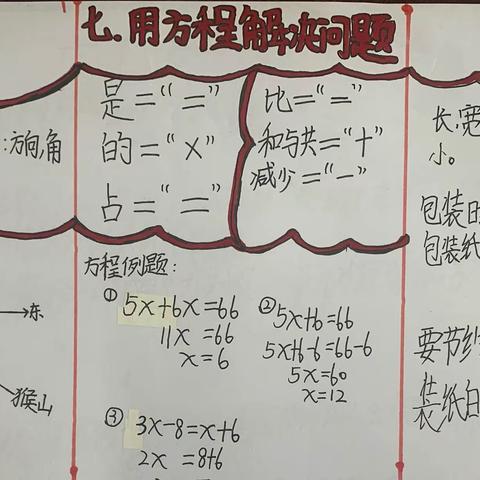 七、用方程解决问题
:方向,角
→东
猴山
是=“=”
的=“×”
占=“=”
比=“=”
和与共=“+”
减少=“-”
方程例题:
①
5x+6x=66
11x=66
x=6
②
5x+6=66
5x+6-6=66-6
5x=60
x=12
③
3x-8=x+6
2x=8+6
长,宽
小。
包装
包装纸
要节约
装纸